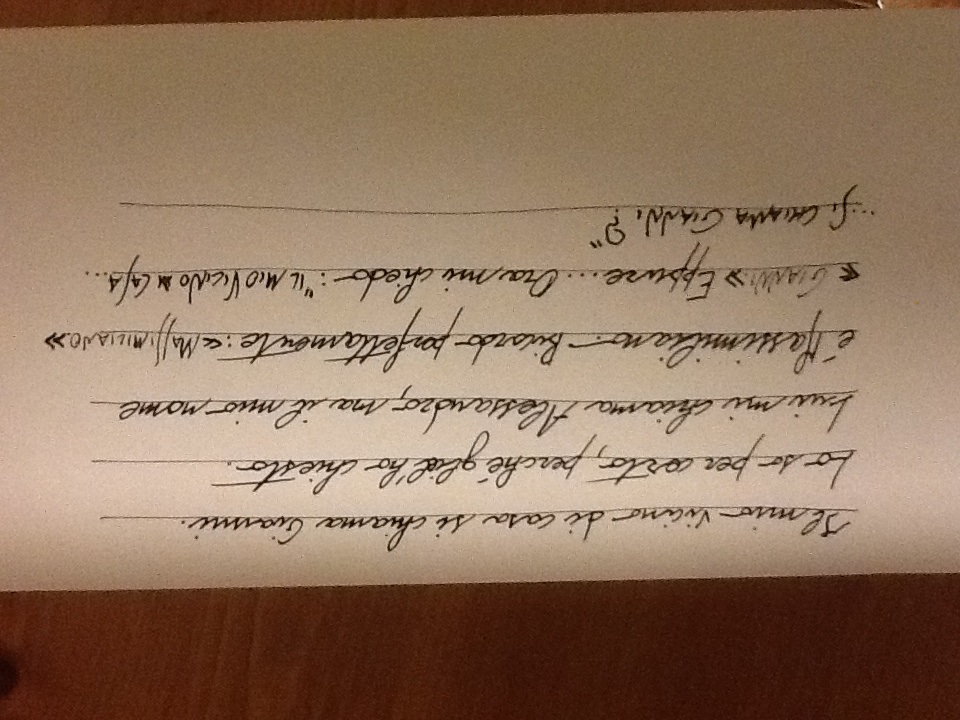 Il mio vicino di casa si chiama Gianni.
Lo so per certo, perché gliel'ho chiesto.
Lui mi chiama Alessandro, ma il mio nome
è Massimiliano. Ricordo perfettamente: «MASSIMILIANO»
«GIANNI» Eppure... Ora mi chiedo: "IL MIO VICINO DI CASA...
...SI CHIAMA GIANNI?"